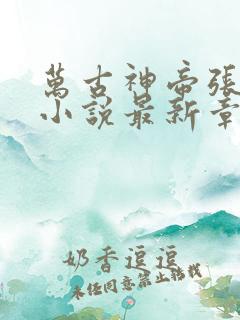 萬古神帝張
小說最新章
奶香逗逗
未經同意禁止轉載